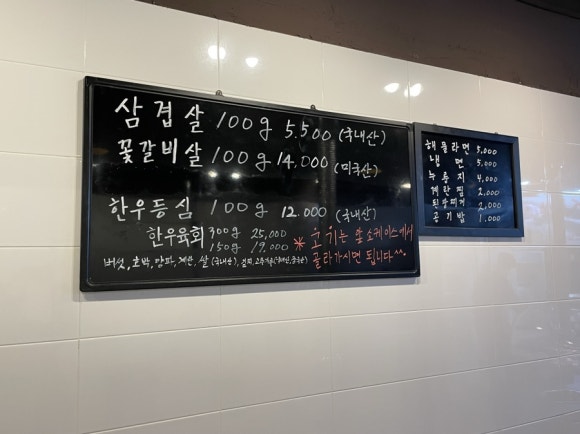 삼겹살 100g 5.500 (국내산)
꽃갈비살 100g 14,000 (미국산)
한우등심 100g 12.000 (국내산)
한우육회 300g 25,000
150g 19.000
버섯, 호박, 양파, 계란, 쌀 (국내산), 김치, 고추가루(국내산, 중국산)
* 고기는 앞 쇼케이스에서
골라가시면 됩니다^^
해물라면 5,000
냉면 5,000
누룽지 4,000
계란찜 2,000
된장찌개 2,000
공기밥 1,000